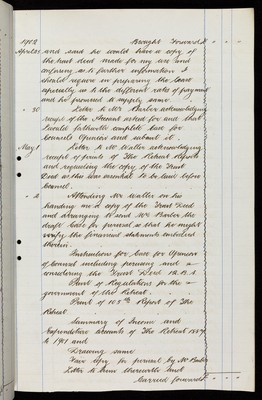 1902 Brought Forward £
April 25 and said he would have a copy of
the trust deed made for my use and
conferring as to further information I
should require in preparing the Case
specially as to the different rates of payment
and he promised to supply same
" 30 Letter to Mr Barber acknowledging
receipt of the Account asked for and that
I would forthwith complete Case for
Counsels Opinion and submit it.
May 1 Letter to Mr Waller acknowledging
receipt of prints of The Retreat Reports
and requesting the copy of the Trust
Deed as this was essential to be laid before
Counsel.
" 2 Attending Mr Waller on his
handing me a copy of the Trust Deed
and arranging to send Mr Barber the
draft Case for perusal so that he might
verify the financial statements embodied
therein.
Instructions for Case for Opinion
of Counsel including perusing and
considering the Trust Deed
Print of Regulations for the
government of the Retreat.
Print of 105th Report of The
Retreat
Summary of Income and
Expenditure Accounts of The Retreat
to 1901 and
Drawing same
Fair Copy for perusal by Mr Barber
Letter to him therewith and
Carried forward £